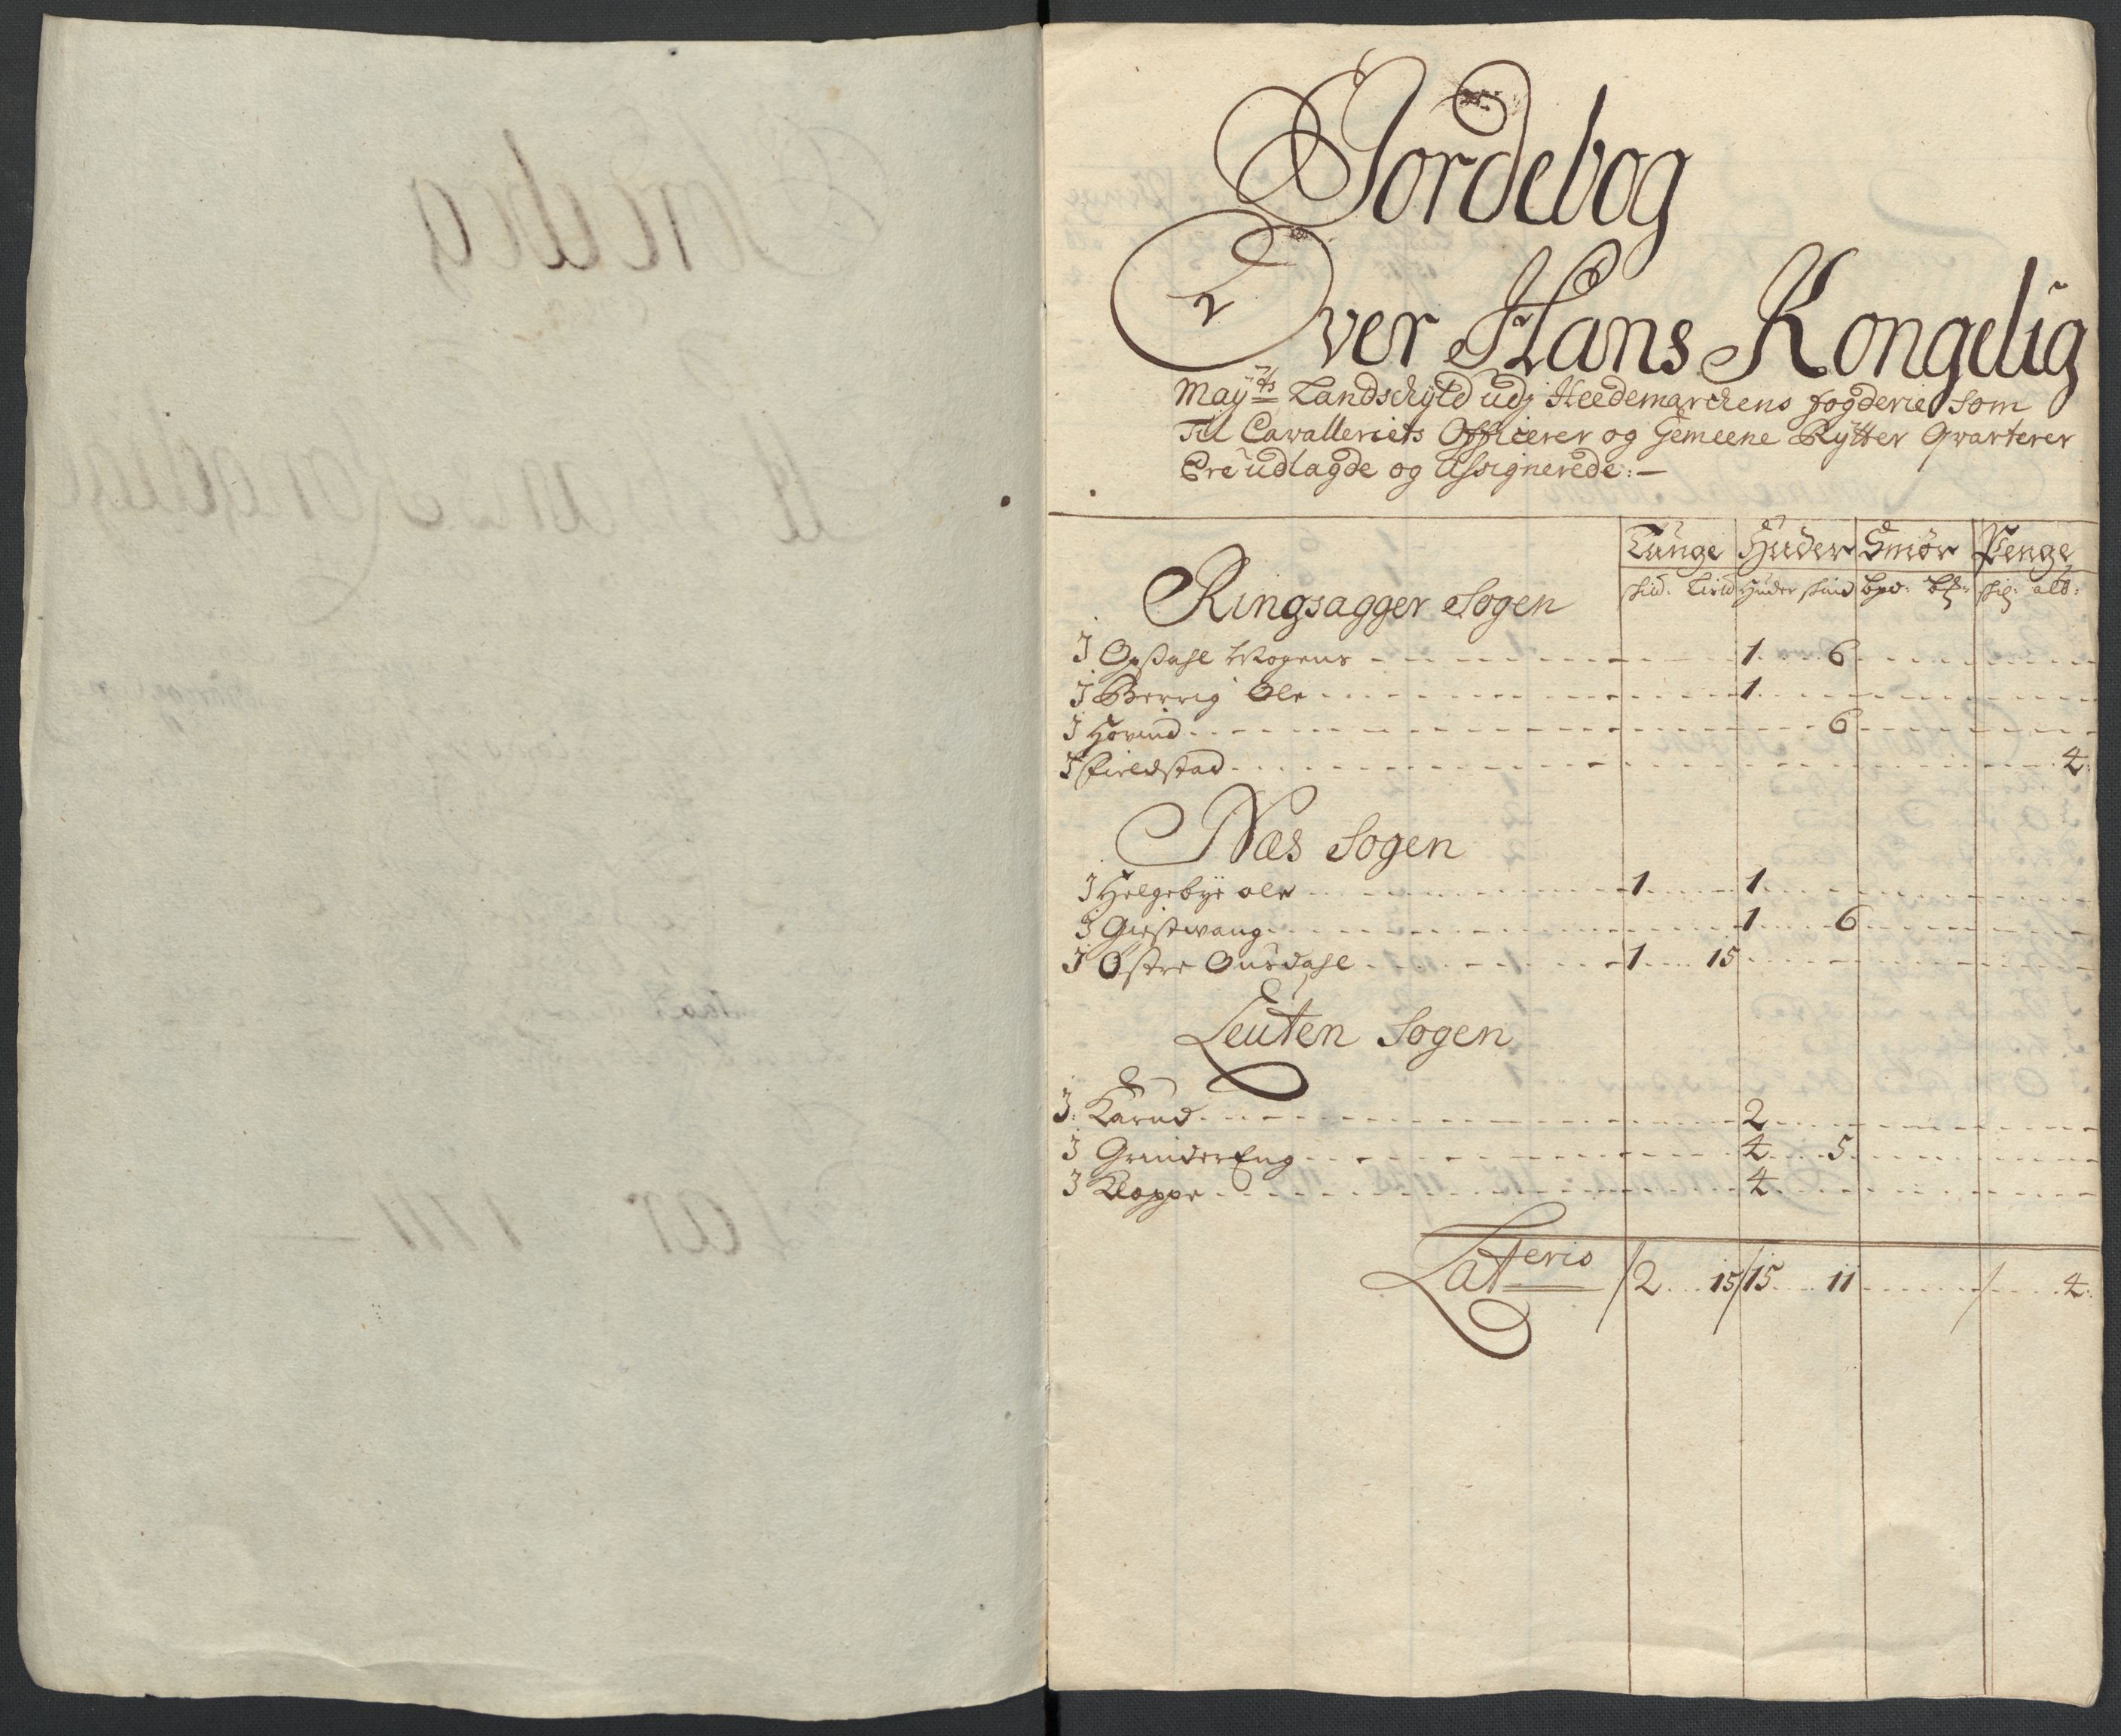 Jordebog
Over Hans Kongelig
Mayts Landschyld udj Heedemarchens fogderie som
Til Cavalleriets Officerer og Gemeene Rytter Qvarterer
Ere udlagde og Assignerede:—
Tunge Huder Smør Penge
skid. Huder skind bpd:
Ringsagger Sogen
J Opdahl Mogens 1 6
J Berrig Ole 1
J Hovind 6
J Fieldstad 4
Næs Sogen
J Helgebye ole 1 1
J Giestvang 1 6
J Østre Ousdahl 1 15
Leuten Sogen
J: Karud 2
J GrinderEng 4 5
J Kloppe 4
Latteris 2 15 15 11 4